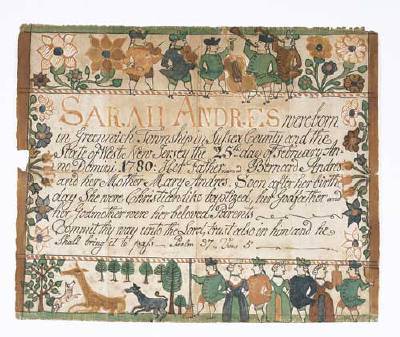 SARAH ANDRES were born
in Greenwich Township in Sussex County and the
State of West New Jersey the 25th day of February An=
no Domini 1780. Her Father Bernard Andres
and her Mother Mary Andres. Soon after her birth
day She were Christian like baptized, her Godfather and
her Godmother were her beloved Parents
Commit thy way unto the Lord, trust also in him and he
Shall bring it to pass Psalm 37. Vers 5